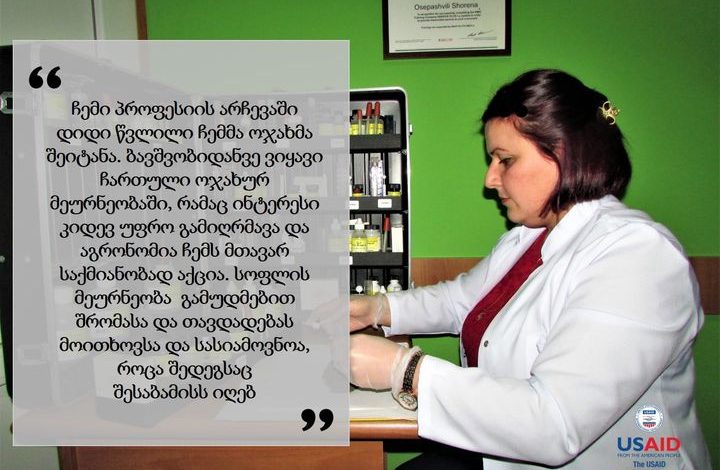 Osepashvili Shorena
“
ჩემი პროფესიის არჩევაში
დიდი წვლილი ჩემმა ოჯახმა
შეიტანა. ბავშვობიდანვე ვიყავი
ჩართული ოჯახურ
მეურნეობაში, რამაც ინტერესი
კიდევ უფრო გამიღრმავა და
აგრონომია ჩემს მთავარ
საქმიანობად აქცია. სოფლის
მეურნეობა გამუდმებით
შრომასა და თავდადებას
მოითხოვსა და სასიამოვნოა,
როცა შედეგსაც
შესაბამისს იღებ
”
USAID
FROM THE AMERICAN PEOPLE
The USAID